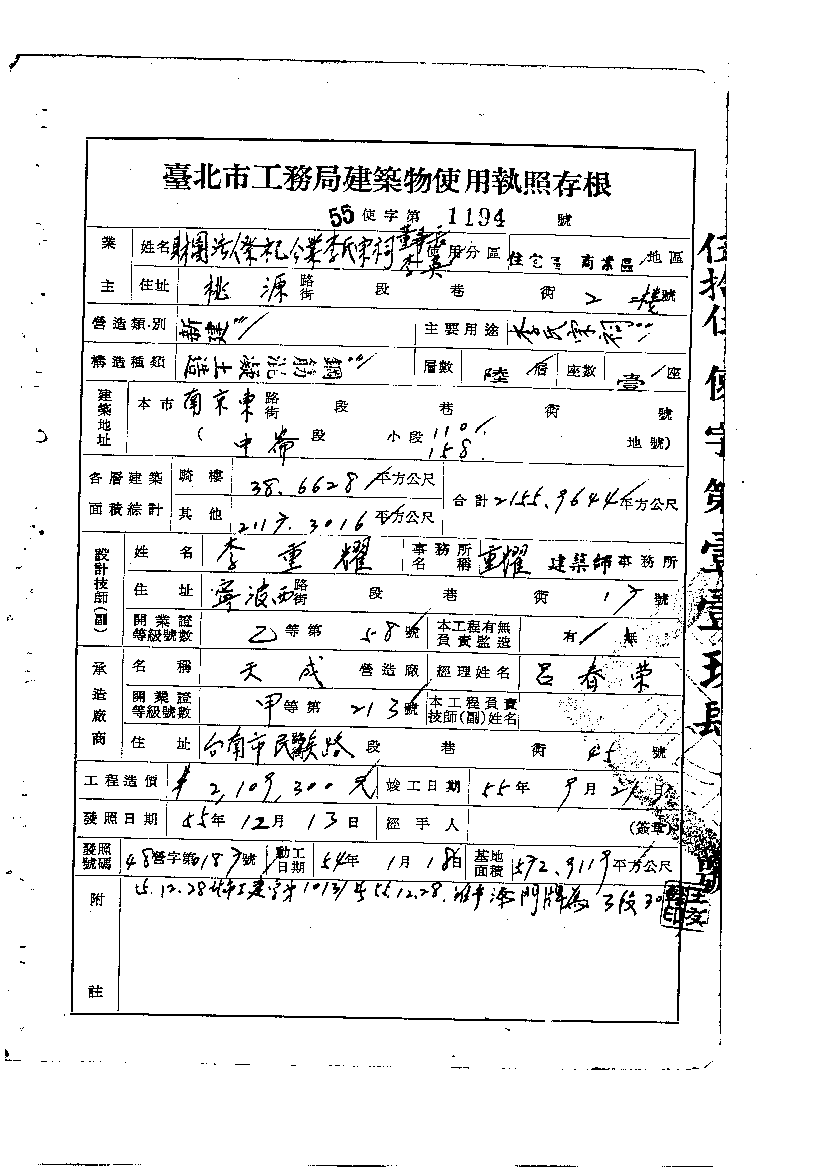 臺北市工務局建築物使用執照存根
55 使字第 1194 號
業主 姓名 財團法人 李氏宗祠 董事長 李 使用分區 住宅區 商業區 地區
住址 桃源 路街 段 巷 衖 2 二樓號
營造類別 新建 主要用途 李氏宗祠
構造種類 鋼筋混凝土造 層數 陸層 座數 壹座
建築地址 本市 南京東 路街 段 巷 衖 號
(中崙 段 小段 110 158 地號)
各層建築面積綜計 騎樓 38.6628 平方公尺 合計 2155.9644 平方公尺
其他 2117.3016 平方公尺
設計技師(副) 姓名 李重耀 事務所名稱 重耀 建築師事務所
住址 寧波西 路街 段 巷 衖 17 號
開業證等級號數 乙等第 58 號 本工程有無負責監造 有 無
承造廠商 名稱 天成 營造廠 經理姓名 呂春榮
開業證等級號數 甲等第 213 號 本工程負責技師(副)姓名
住址 台南市民 路 段 巷 衖 45 號
工程造價 2,109,300元 竣工日期 55年 9月 21日
發照日期 55年 12月 13日 經手人 (簽章)
發照號碼 48 營字第 0187 號 動工日期 54年 1月 18日 基地面積 592.9119 平方公尺
附註 55.12.28 建字第 10131 號 55.12.28. 門牌為
伍拾伍使字第壹壹玖肆號